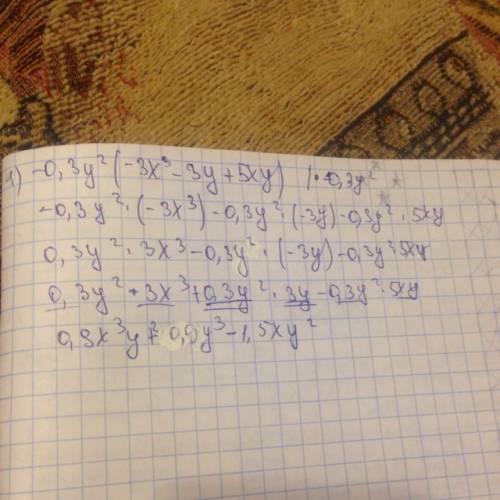 1) -0,3y² (-3x³ - 3y + 5xy) | · -0,3y²
-0,3y² · (-3x³) - 0,3y² · (-3y) - 0,3y² · 5xy
0,3y² · 3x³ - 0,3y² · (-3y) - 0,3y² 5xy
0,3y² · 3x³ + 0,3y² · 3y - 0,3y² · 5xy
0,9x³y² + 0,9y³ - 1,5xy²